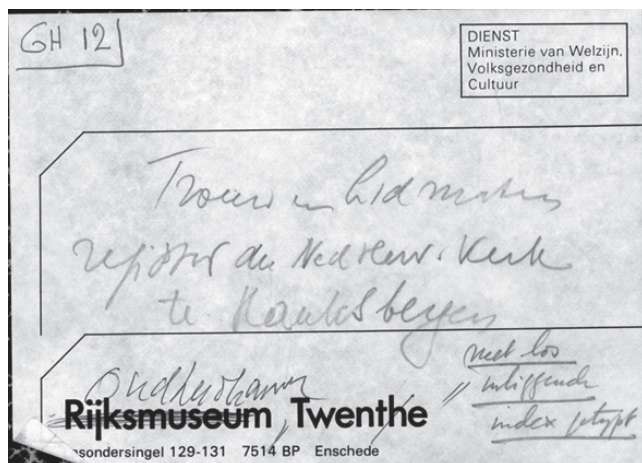 GH 12
DIENST
Ministerie van Welzijn,
Volksgezondheid en
Cultuur
Trouw en Lidmaten
register der Ned Herv. Kerk
te Haaksbergen
met los
inliggende
index getypt
Rijksmuseum Twenthe
sondersingel 129-131 7514 BP Enschede